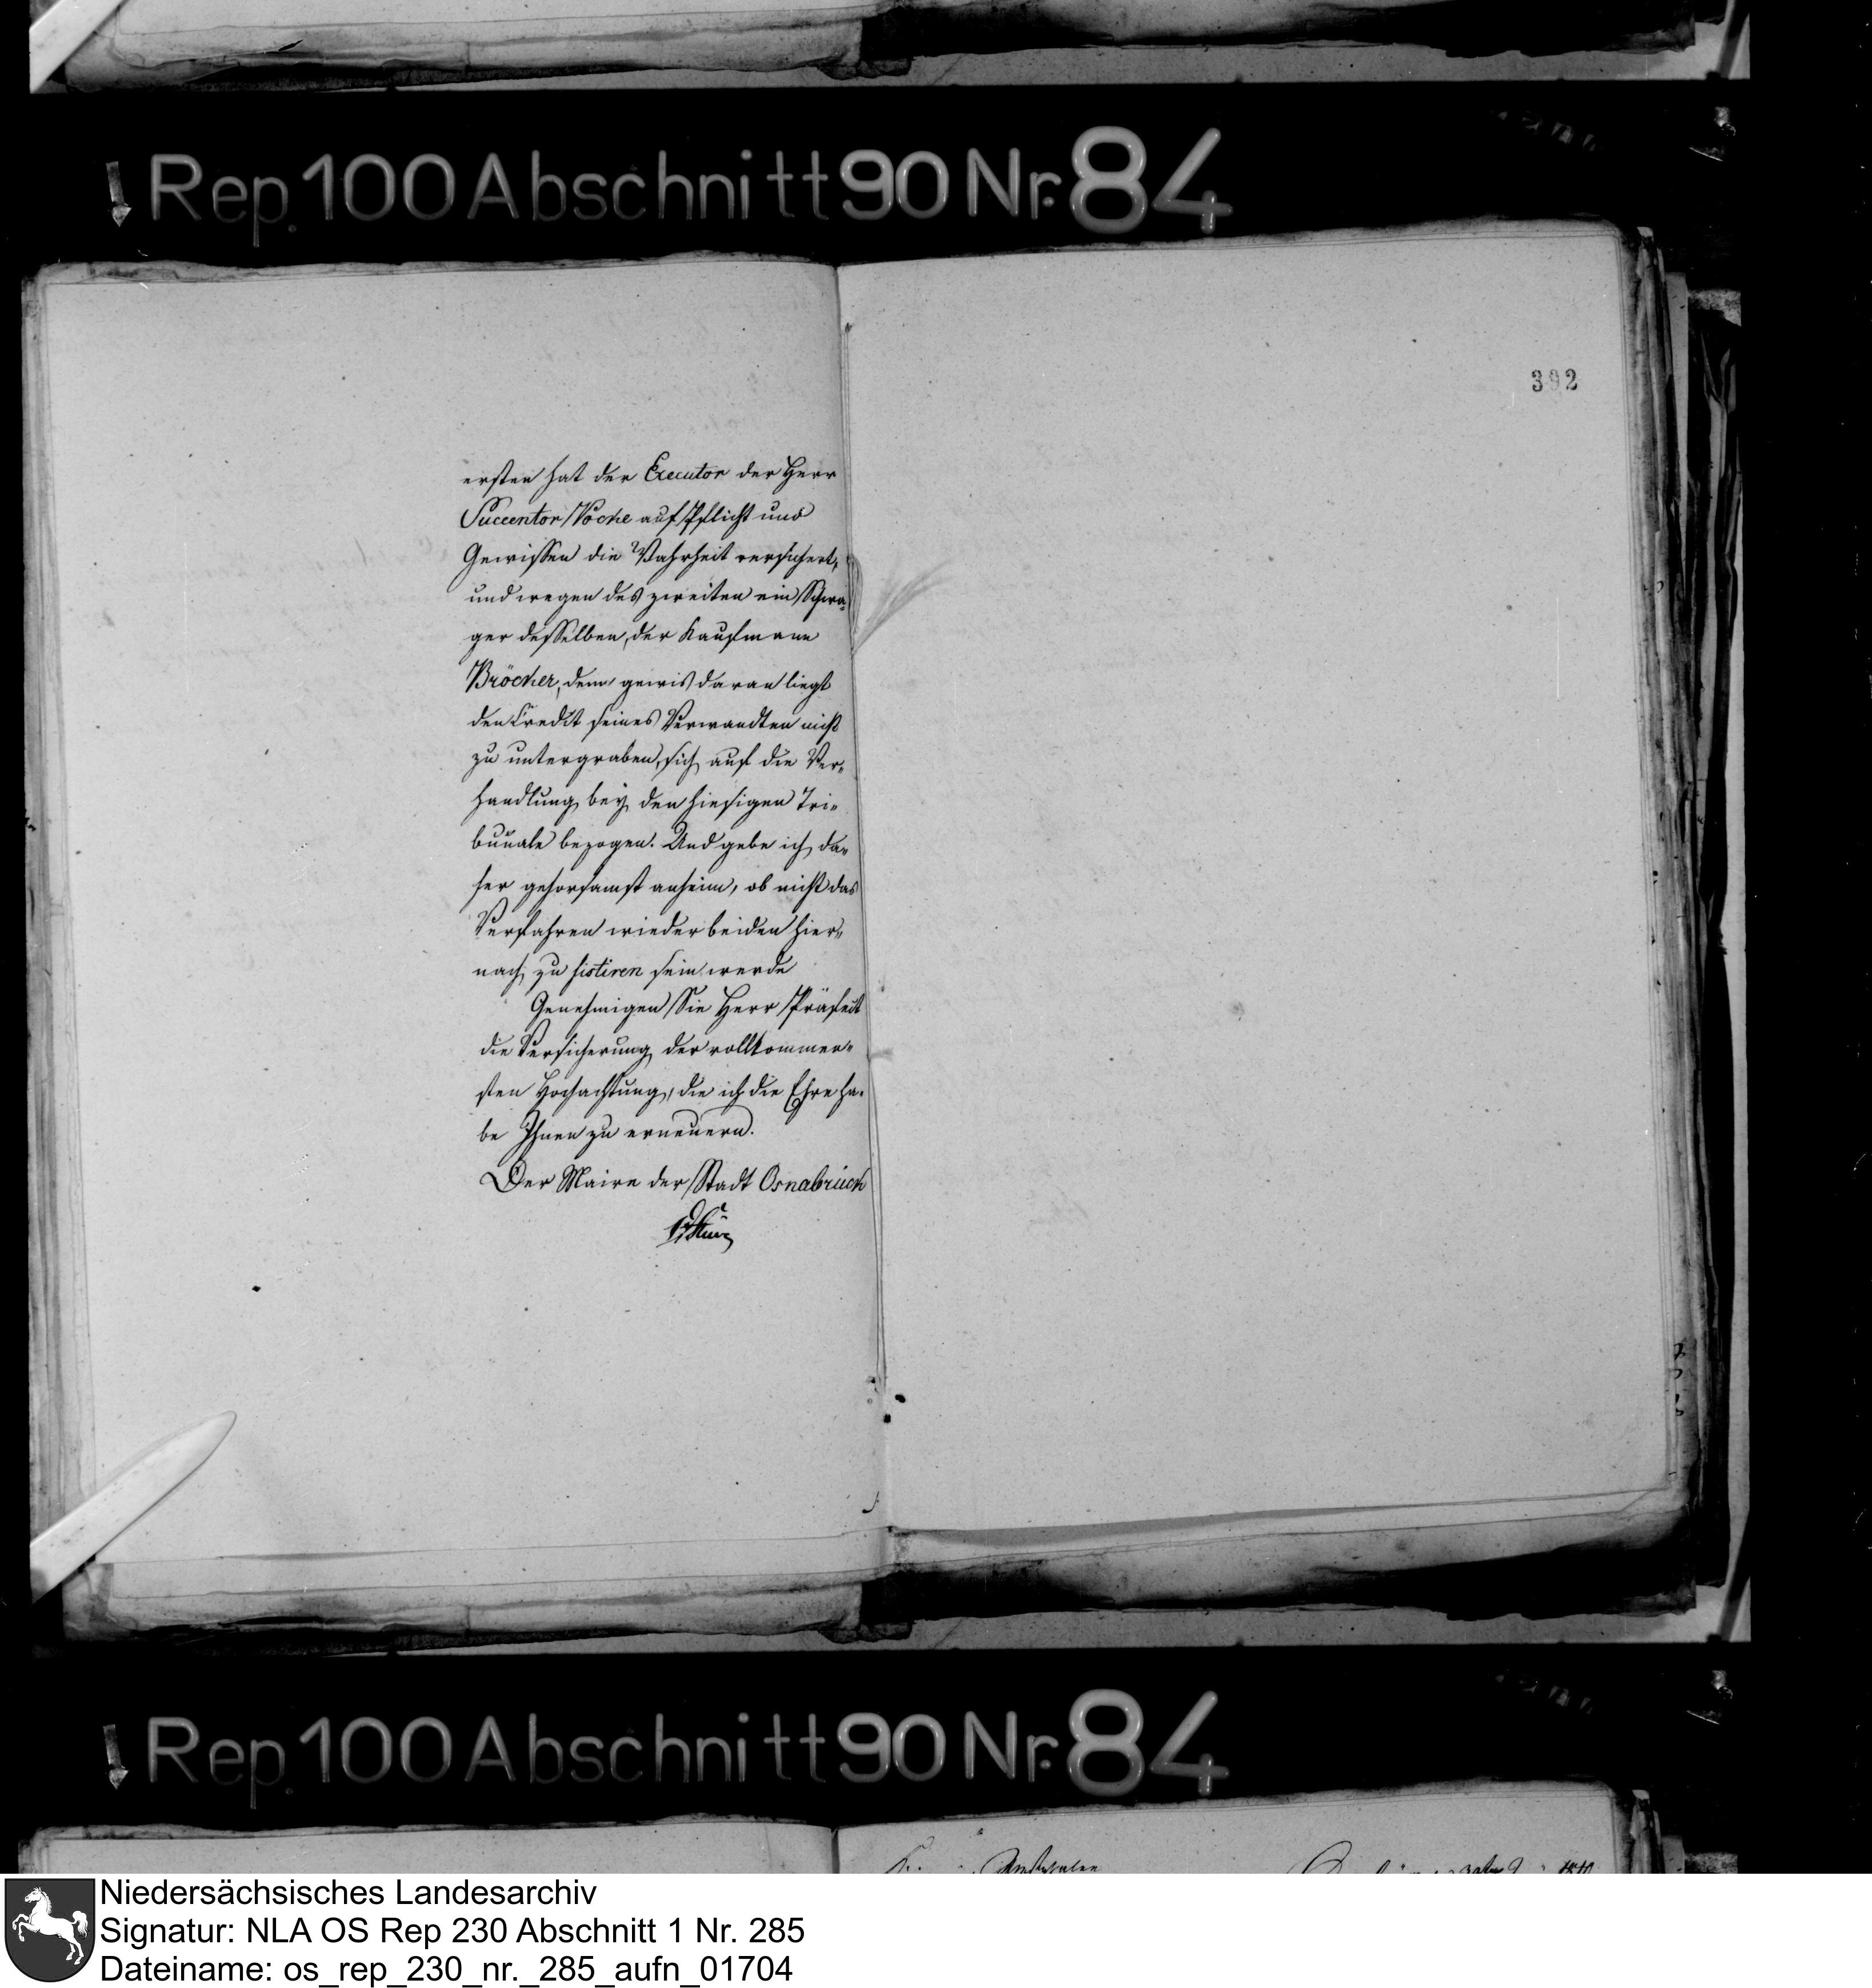 Rep. 100 Abschnitt 90 Nr. 84
392
ersten hat der Executor der Herr
Succentor Noche auf Pflicht und
Gewissen die Wahrheit versichert,
und wegen des zweiten ein Schwa-
ger desselben, der Kaufmann
Bröcker, dem gewis daran liegt
den Credit seines Verwandten nicht
zu untergraben, sich auf die Ver-
handlung bey den hiesigen Tri-
bunale bezogen. Und gebe ich da-
her gehorsamst anheim, ob nicht das
Verfahren wieder beiden hier-
nach zu sistiren sein werde
Genehmigen Sie Herr Präfect
die Versicherung der vollkommen-
sten Hochachtung, die ich die Ehre ha-
be Ihnen zu erneuern.
Der Maire der Stadt Osnabrück
Rep. 100 Abschnitt 90 Nr. 84
Niedersächsisches Landesarchiv
Signatur: NLA OS Rep 230 Abschnitt 1 Nr. 285
Dateiname: os_rep_230_nr._285_aufn_01704